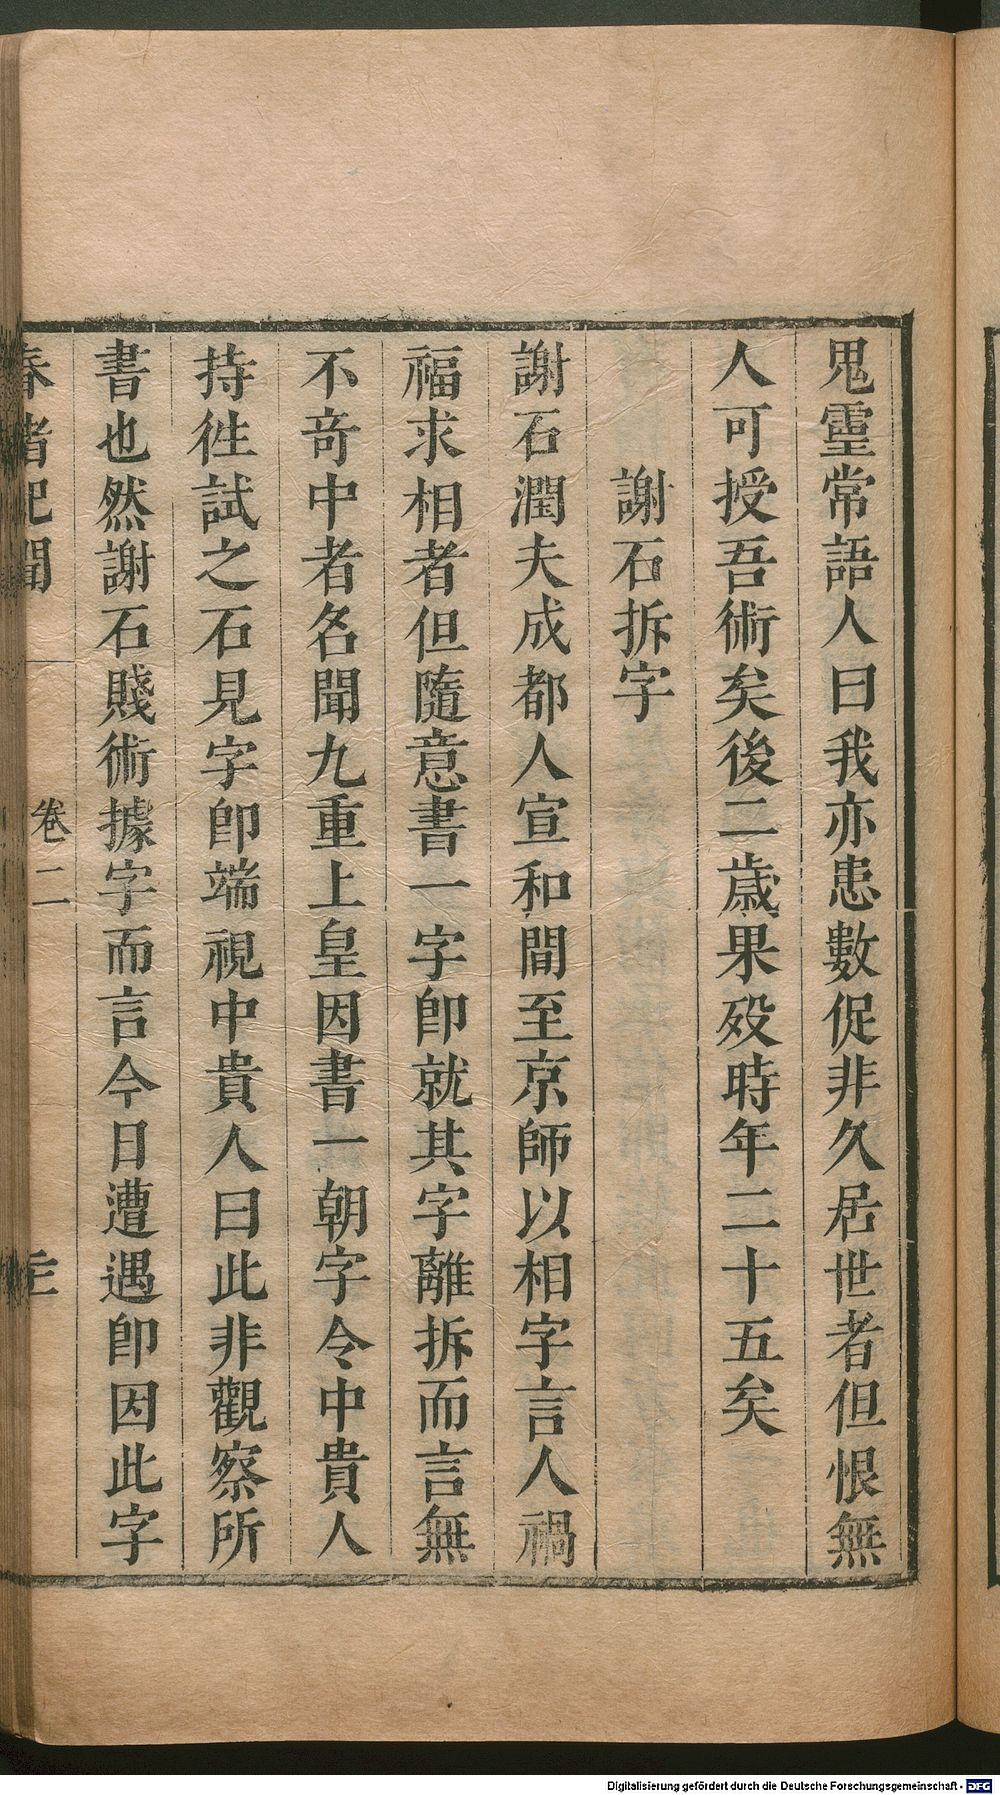 鬼靈常語人曰我亦患數促非久居世者但恨無
人可授吾術矣後二歲果歿時年二十五矣
謝石拆字
謝石潤夫成都人宣和間至京師以相字言人禍
福求相者但隨意書一字卽就其字離拆而言無
不竒中者名聞九重上皇因書一朝字令中貴人
持徃試之石見字卽端視中貴人曰此非觀察所
書也然謝石賤術據字而言今日遭遇卽因此字
春渚紀聞
卷二
Digitalisierung gefördert durch die Deutsche Forschungsgemeinschaft - DFG